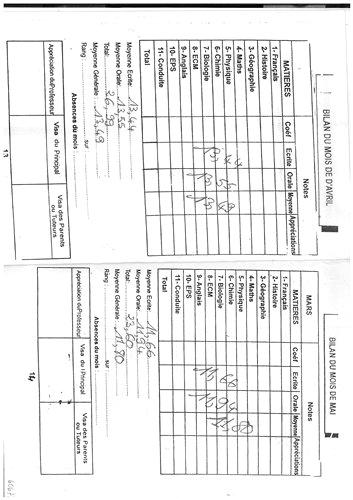 BILAN DU MOIS DE D'AVRIL
MATIERES Coéf Notes
Ecrite Orale Moyenne Appréciations
1- Français
2- Histoire
3- Géographie
4- Maths
5- Physique
6- Chimie
7- Biologie
8- ECM
9- Anglais
10- EPS
11- Conduite
Total
Moyenne Ecrite: 13,44
Moyenne Orale: 13,55
Total: 26,99
Moyenne Générale: 13,49
Rang: sur
Absences du mois:
Appréciation du Professeur Visa du Principal Visa des Parents ou Tuteurs
13
BILAN DU MOIS DE MAI
MARS
MATIERES Coéf Notes
Ecrite Orale Moyenne Appréciations
1- Français
2- Histoire
3- Géographie
4- Maths
5- Physique
6- Chimie
7- Biologie
8- ECM
9- Anglais
10- EPS
11- Conduite
Total
Moyenne Ecrite: 11,66
Moyenne Orale: 11,94
Total: 23,60
Moyenne Générale: 11,80
Rang: sur
Absences du mois:
Appréciation du Professeur Visa du Principal Visa des Parents ou Tuteurs
14